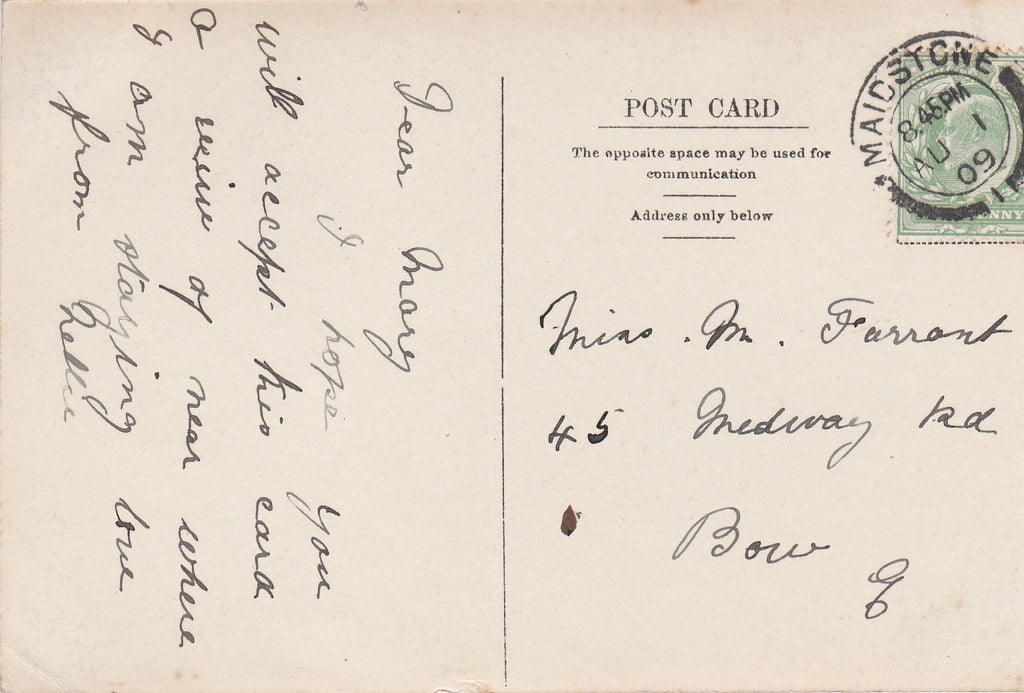 Dear Mary
I hope you
will accept this card
a view of near where
I am staying love
from Nellie
POST CARD
The opposite space may be used for
communication
Address only below
MAIDSTONE
8.45 PM
AU 1
09
Miss . M . Farrant
45 Medway Rd
Bow
E